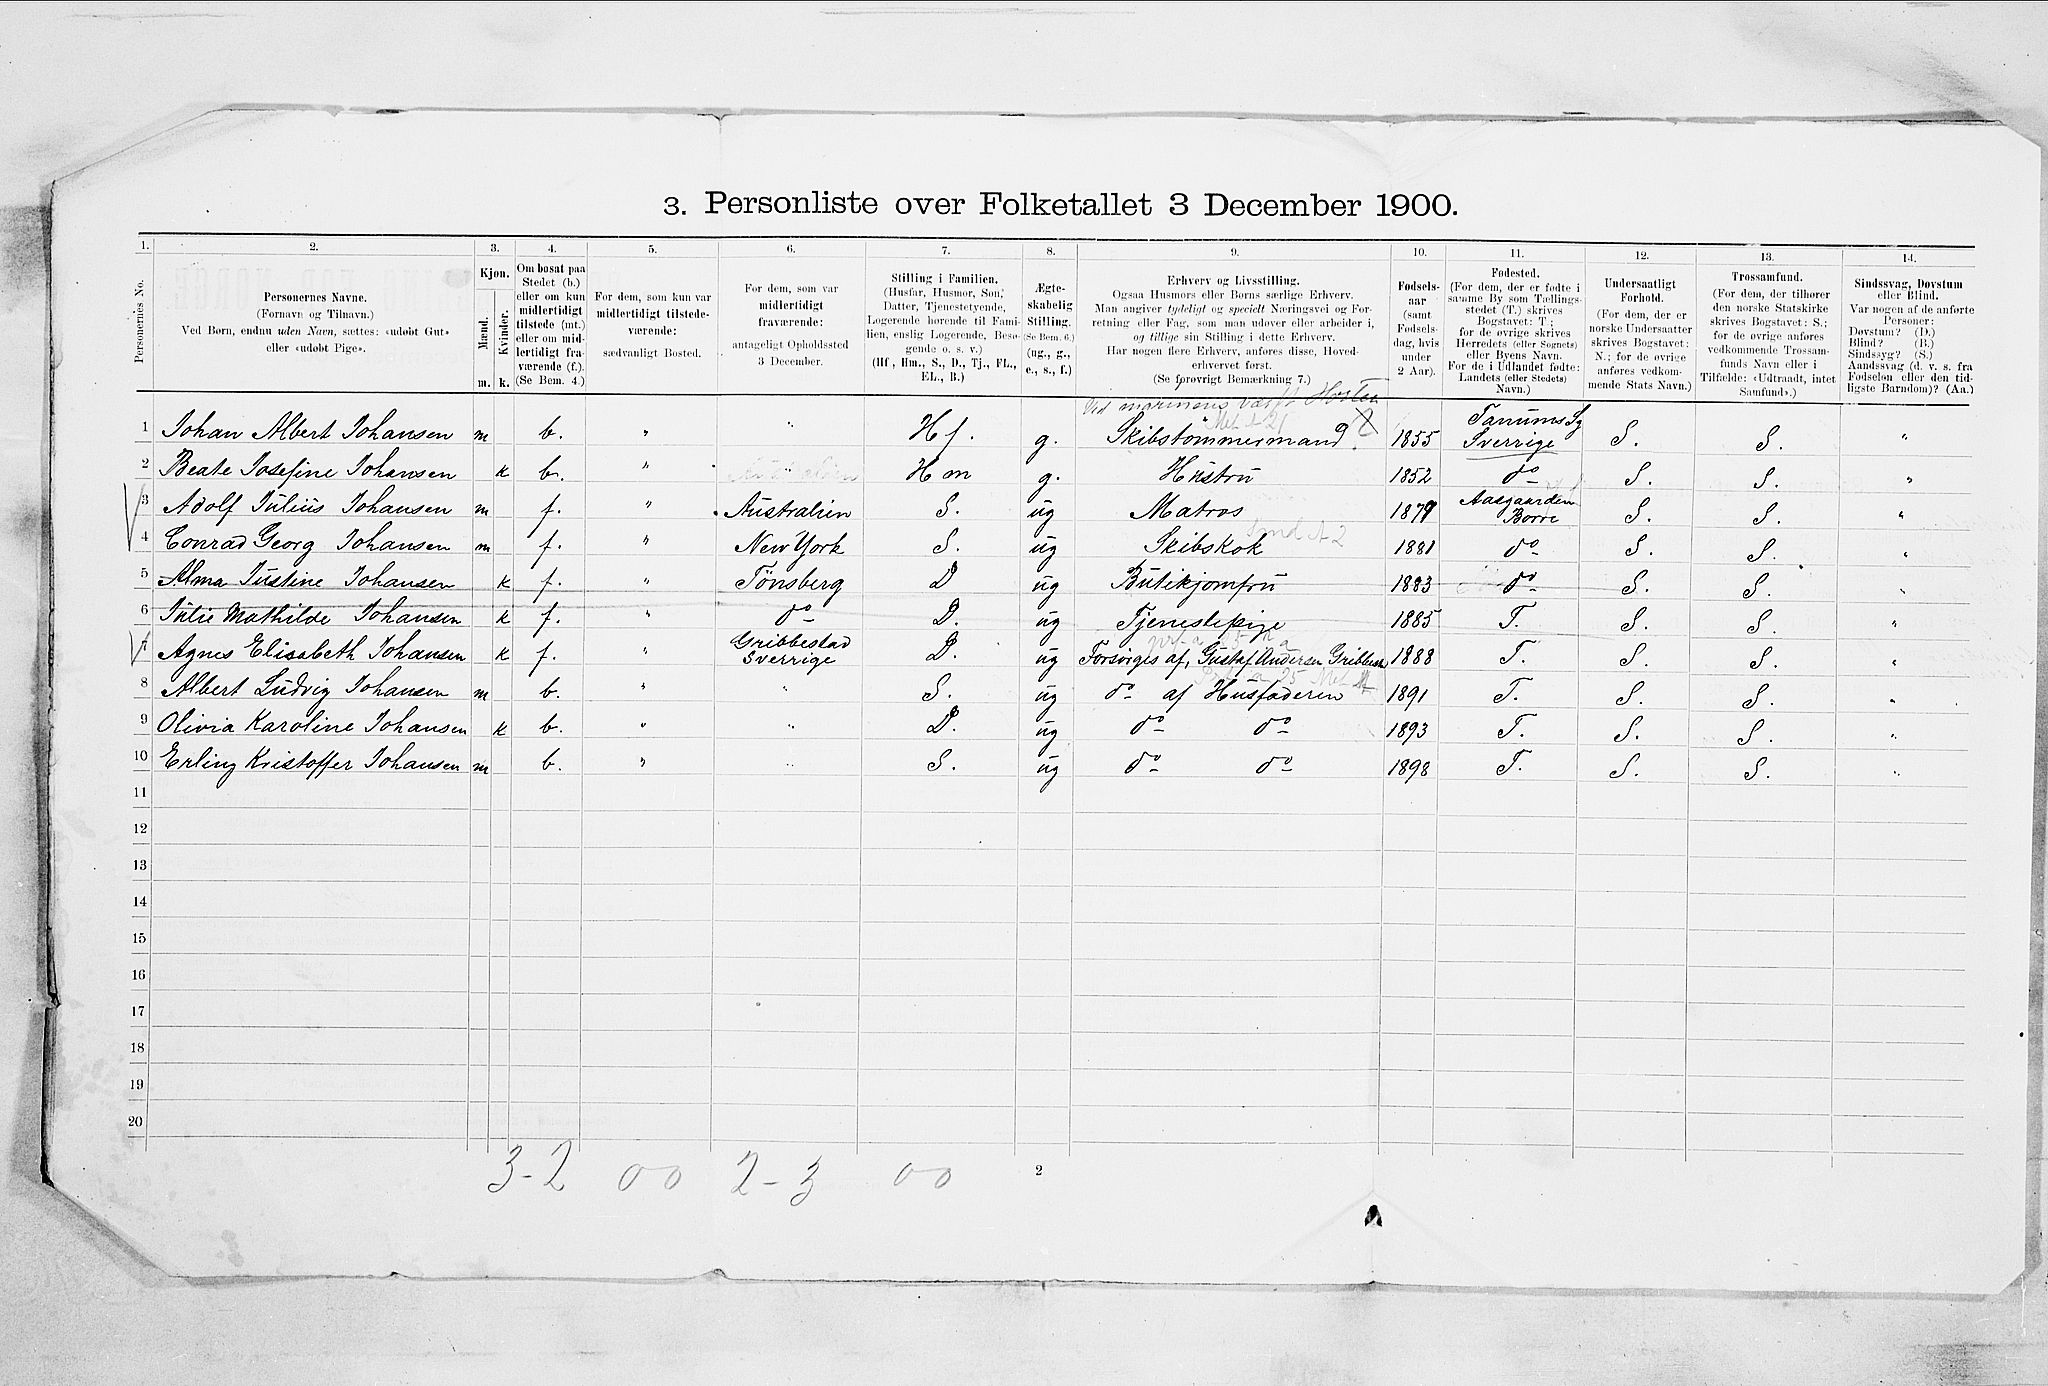 3. Personliste over Folketallet 3 December 1900.
1. 2. 3. 4. 5. 6. 7. 8. 9. 10. 11. 12. 13. 14.
Personernes No.
Personernes Navne.
(Fornavn og Tilnavn.)
Ved Børn, endnu uden Navn, sættes: «udøbt Gut»
eller «udøbt Pige».
Kjøn.
Mænd.
Kvinder.
m. k.
Om bosat paa
Stedet (b.)
eller om kun
midlertidigt
tilstede (mt.)
eller om mid-
lertidigt fra-
værende (f.).
(Se Bem. 4.)
For dem, som kun var
midlertidigt tilstede-
værende:
sædvanligt Bosted.
For dem, som var
midlertidigt
fraværende:
antageligt Opholdssted
3 December.
Stilling i Familien.
(Husfar, Husmor, Søn,
Datter, Tjenestetyende,
Logerende hørende til Fami-
lien, enslig Logerende, Besø-
gende o. s. v.)
(Hf., Hm., S., D., Tj., FL.,
EL., B.)
Ægte-
skabelig
Stilling.
(Se Bem. 6.)
(ug., g.,
e., s., f.)
Erhverv og Livsstilling.
Ogsaa Husmors eller Børns særlige Erhverv.
Man angiver tydeligt og specielt Næringsvei og For-
retning eller Fag, som man udøver eller arbeider i,
og tillige sin Stilling i dette Erhverv.
Har nogen flere Erhverv, anføres disse, Hoved-
erhvervet først.
(Se forøvrigt Bemærkning 7.)
Fødsels-
aar
(samt
Fødsels-
dag, hvis
under
2 Aar).
Fødested.
(For dem, der er fødte i
samme By som Tællings-
stedet (T.) skrives
Bogstavet: T.;
for de øvrige skrives
Herredets (eller Sognets)
eller Byens Navn.
For de i Udlandet fødte:
Landets (eller Stedets)
Navn.)
Undersaatligt
Forhold.
(For dem, der er
norske Undersaatter
skrives Bogstavet:
N.; for de øvrige
anføres vedkom-
mende Stats Navn.)
Trossamfund.
(For dem, der tilhører
den norske Statskirke
skrives Bogstavet: S.;
for de øvrige anføres
vedkommende Trossam-
funds Navn eller i
Tilfælde: «Udtraadt, intet
Samfund».)
Sindssvag, Døvstum
eller Blind.
Var nogen af de anførte
Personer:
Døvstum? (D.)
Blind? (B.)
Sindssyg? (S.)
Aandssvag (d. v. s. fra
Fødselen eller den tid-
ligste Barndom)? (Aa.)
Ved marinens værft Horten
1 Johan Albert Johansen m b. " " Hf. g. Skibstømmermand. 1855 Tanums Sg Sverrige S. S. "
2 Beate Josefine Johansen k b. " Hm g. Hustru 1852 do S. S. "
3 Adolf Julius Johansen m f. " Australien S. ug Matros 1879 Aasgaarden Borre S. S. "
4 Conrad Georg Johansen m f. " New York S. ug Skibskok 1881 do S. S. "
5 Alma Justine Johansen k f. " Tönsberg D ug Butikjomfru 1883 do S. S. "
6 Julie Mathilde Johansen k f. " do D. ug Tjenestepige 1885 T. S. S. "
7 Agnes Elisabeth Johansen k f. " Gribbestad Sverrige D. ug Forsörges af, Gustaf Andersen Gribbest. 1888 T. S. S. "
8 Albert Ludvig Johansen m b. " " S. ug do af Husfaderen 1891 T. S. S. "
9 Olivia Karoline Johansen k b. " " D. ug do do 1893 T. S. S. "
10 Erling Kristoffer Johansen m b. " " S. ug do do 1898 T. S. S. "
11
12
13
14
15
16
17
18
19
20
3-2 00 2-3 00 2